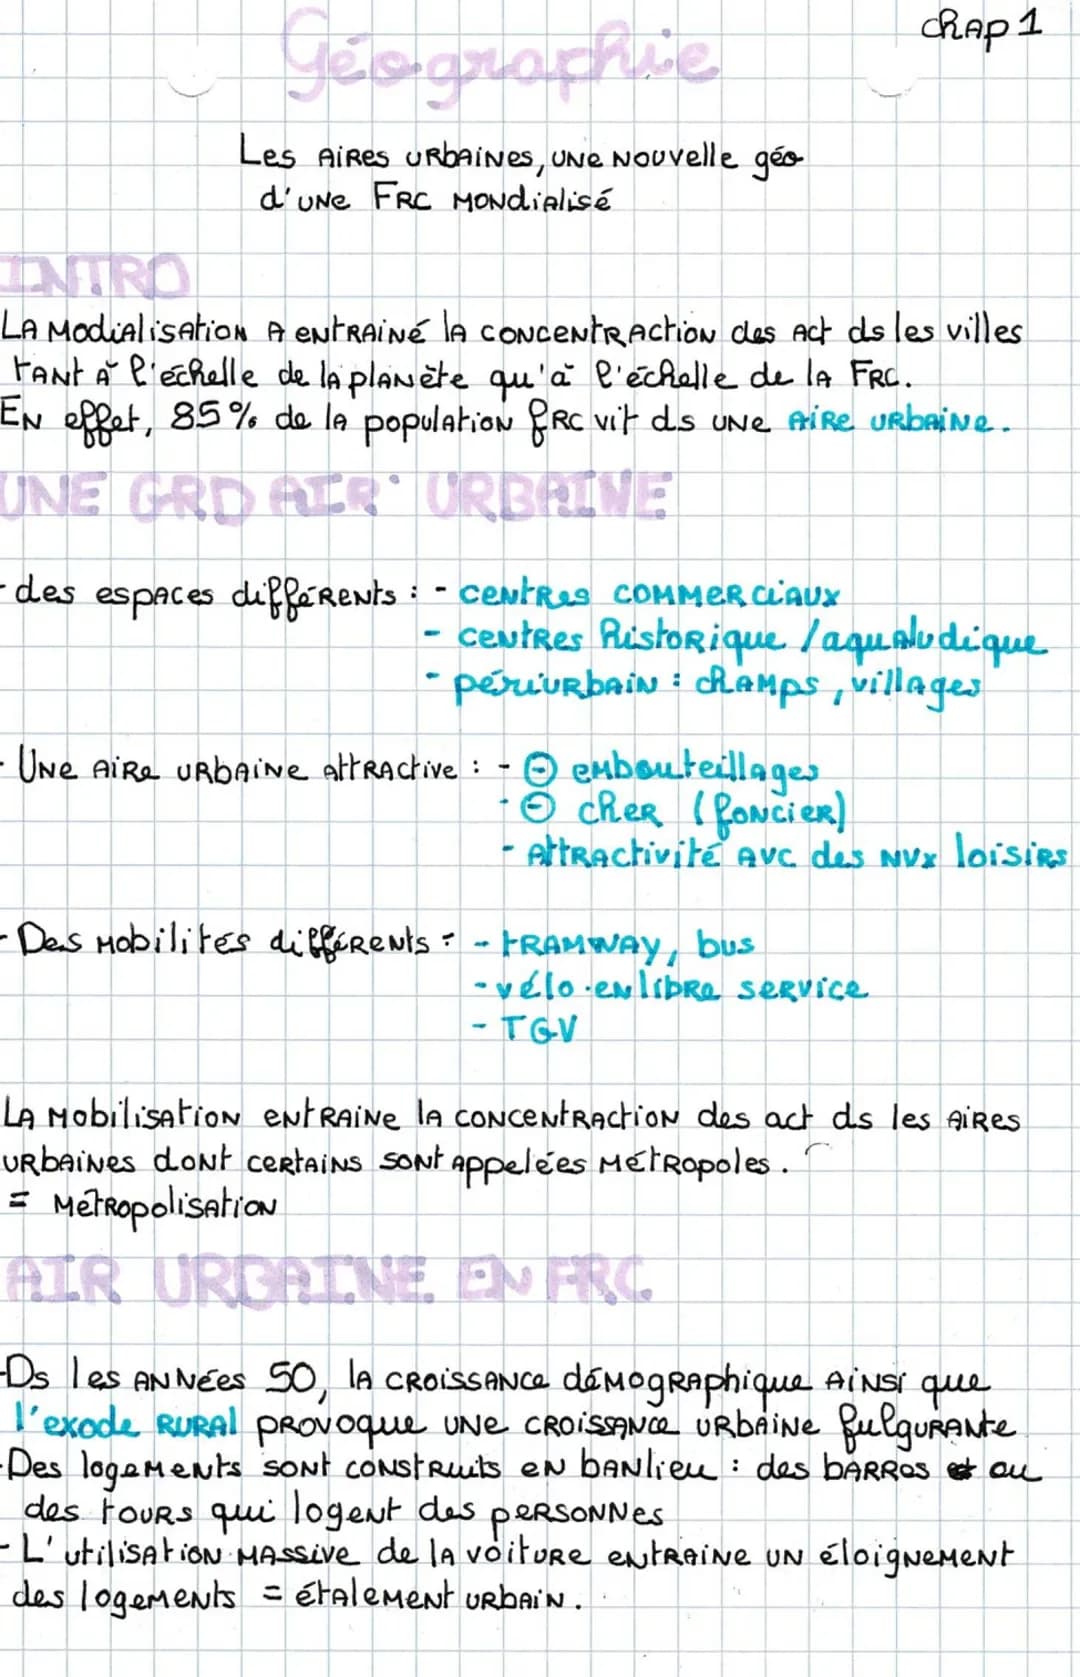 chap 1
Géographie
Les aires urbaines, une nouvelle géo
d'une FRC mondialisé
INTRO
La modialisation a entrainé la concentraction des act ds les villes
tant à l'échelle de la planète qu'à l'échelle de la FRC.
En effet, 85% de la population frc vit ds une aire urbaine.
UNE GRD AIR URBAINE
- des espaces différents : - centres commerciaux
- centres historique / aqualudique
- périurbain : champs, villages
- Une aire urbaine attractive : - ⊖ embouteillages
- ⊖ cher (foncier)
- attractivité avc des nvx loisirs
- Des mobilités différents : - tramway, bus
- vélo en libre service
- TGV
La mobilisation entraine la concentraction des act ds les aires
urbaines dont certains sont appelées métropoles.
= Métropolisation
AIR URBAINE EN FRC
- Ds les années 50, la croissance démographique ainsi que
l'exode rural provoque une croissance urbaine fulgurante
- Des logements sont construits en banlieu : des barros ou
des tours qui logent des personnes
- L'utilisation massive de la voiture entraine un éloignement
des logements = étalement urbain.